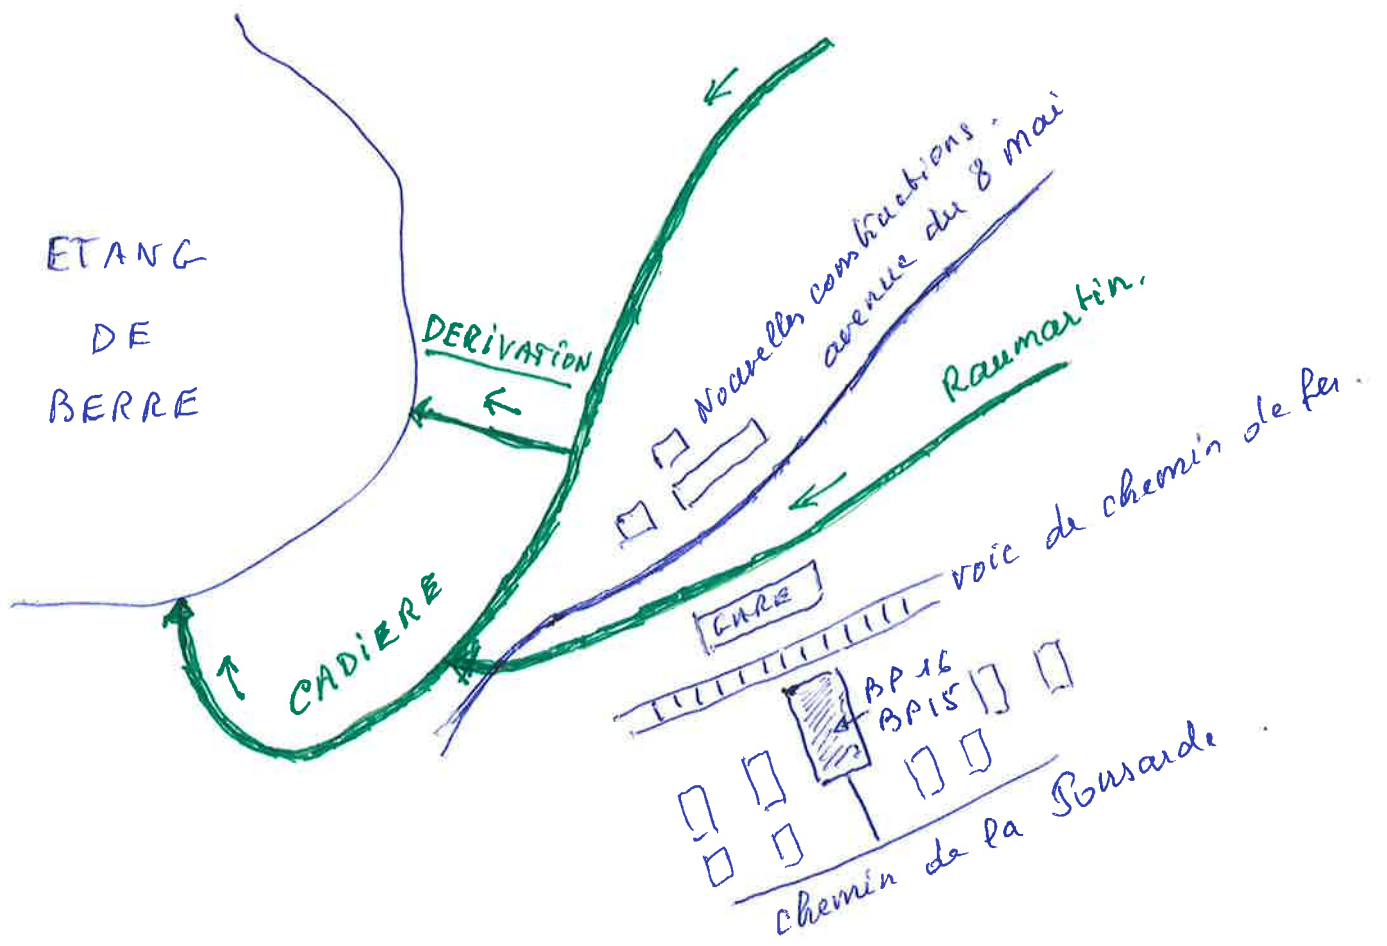 ETANG
DE
BERRE
DERIVATION
Nouvelles constructions.
avenue du 8 mai
Raumartin.
voie de chemin de fer.
GARE
CADIERE
BP 16
BP15
chemin de la Pousarde.